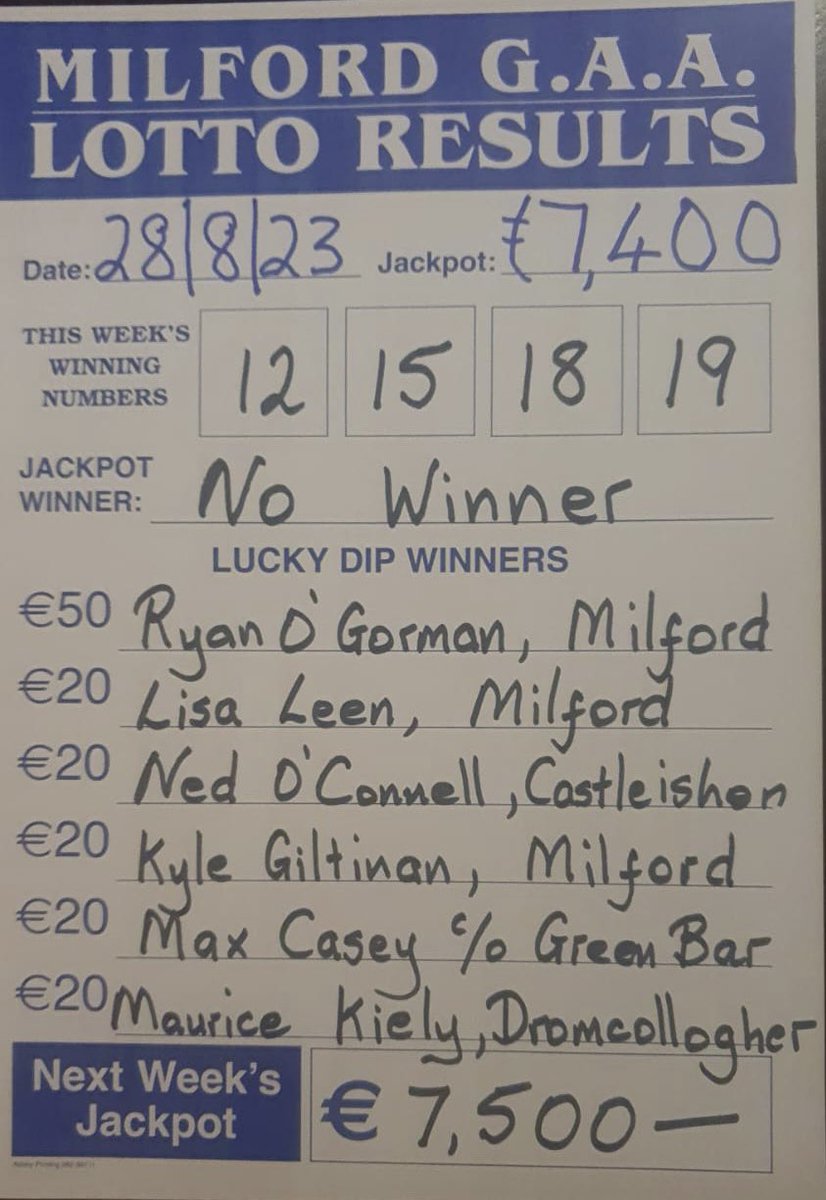 MILFORD G.A.A.
LOTTO RESULTS
Date: 28/8/23 Jackpot: €7,400
THIS WEEK'S
WINNING
NUMBERS
12 15 18 19
JACKPOT
WINNER: No Winner
LUCKY DIP WINNERS
€50 Ryan O'Gorman, Milford
€20 Lisa Leen, Milford
€20 Ned O'Connell, Castleishen
€20 Kyle Giltinan, Milford
€20 Max Casey c/o Green Bar
€20 Maurice Kiely, Dromcollogher
Next Week's
Jackpot
€ 7,500 —